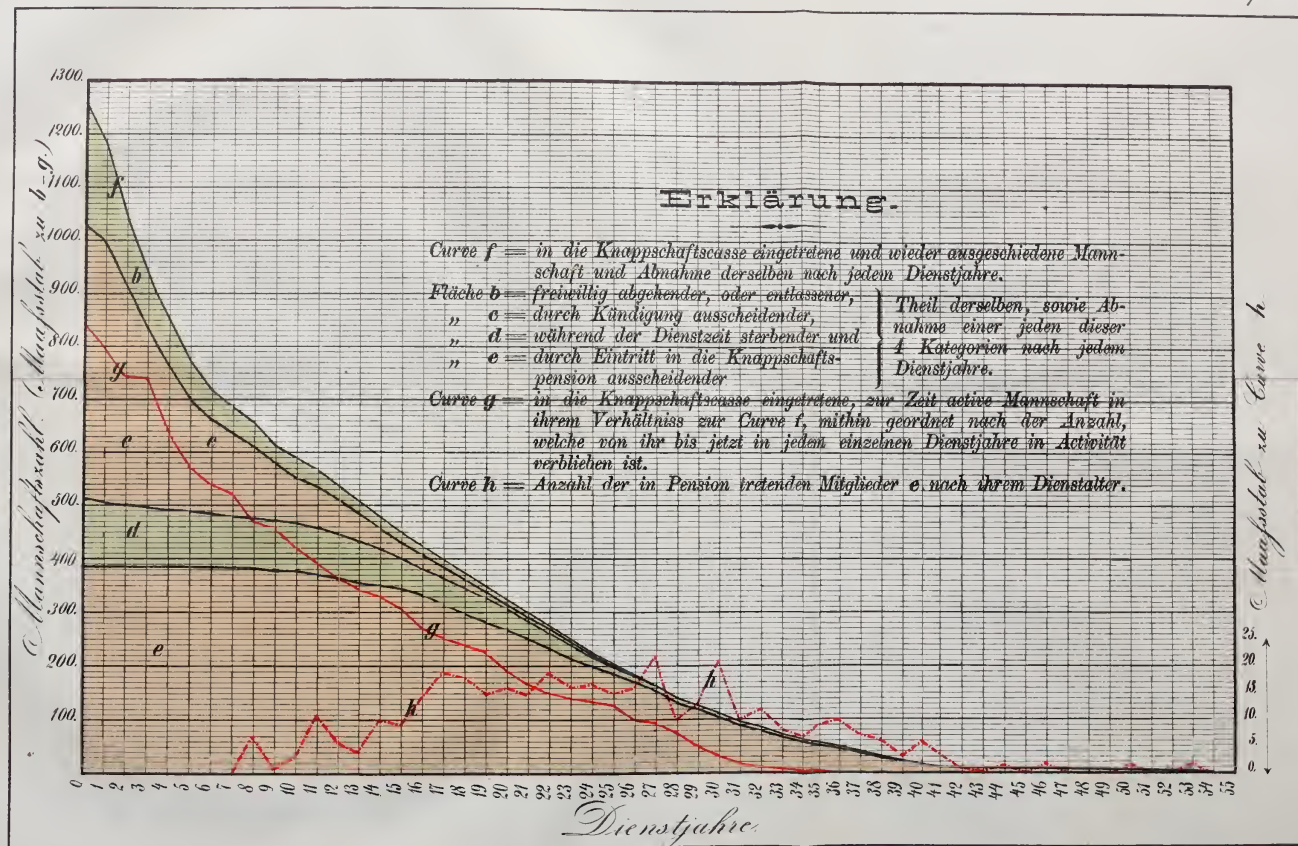 1300.
1200.
1100.
1000.
900.
800.
700.
600.
500.
400.
300.
200.
100.
Mannschaftszahl. (Maafsstab zu b-g.)
f
b
g
c
c
d
e
g
h
h
Erklärung.
Curve f = in die Knappschaftscasse eingetretene und wieder ausgeschiedene Mann-
schaft und Abnahme derselben nach jedem Dienstjahre.
Fläche b = freiwillig abgehender, oder entlassener,
„ c = durch Kündigung ausscheidender,
„ d = während der Dienstzeit sterbender und
„ e = durch Eintritt in die Knappschafts-
pension ausscheidender
Theil derselben, sowie Ab-
nahme einer jeden dieser
4 Kategorien nach jedem
Dienstjahre.
Curve g = in die Knappschaftscasse eingetretene, zur Zeit active Mannschaft in
ihrem Verhältniss zur Curve f, mithin geordnet nach der Anzahl,
welche von ihr bis jetzt in jedem einzelnen Dienstjahre in Activität
verblieben ist.
Curve h = Anzahl der in Pension tretenden Mitglieder e nach ihrem Dienstalter.
Maafsstab zu Curve h.
25.
20.
15.
10.
5.
0.
0 1 2 3 4 5 6 7 8 9 10 11 12 13 14 15 16 17 18 19 20 21 22 23 24 25 26 27 28 29 30 31 32 33 34 35 36 37 38 39 40 41 42 43 44 45 46 47 48 49 50 51 52 53 54 55
Dienstjahre.